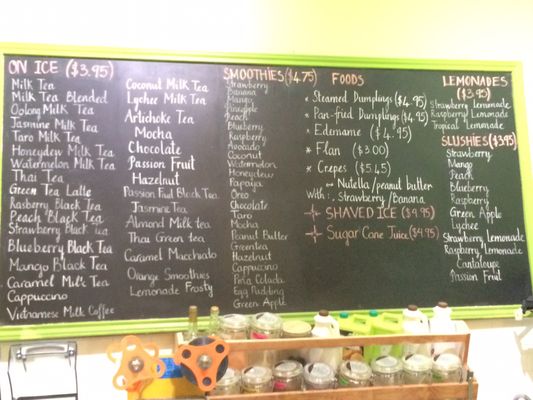 ON ICE ($3.95)
Milk Tea
Milk Tea Blended
Oolong Milk Tea
Jasmine Milk Tea
Taro Milk Tea
Honeydew Milk Tea
Watermelon Milk Tea
Thai Tea
Green Tea Latte
Rasberry Black Tea
Peach Black Tea
Strawberry Black Tea
Blueberry Black Tea
Mango Black Tea
Caramel Milk Tea
Cappuccino
Vietnamese Milk Coffee
Coconut Milk Tea
Lychee Milk Tea
Artichoke Tea
Mocha
Chocolate
Passion Fruit
Hazelnut
Passion Fruit Black Tea
Jasmine Tea
Almond Milk tea
Thai Green tea
Caramel Macchiato
Orange Smoothies
Lemonade Frosty
SMOOTHIES ($4.75)
Strawberry
Banana
Mango
Pineapple
Peach
Blueberry
Raspberry
Avocado
Coconut
Watermelon
Honeydew
Papaya
Oreo
Chocolate
Taro
Mocha
Peanut Butter
Greentea
Hazelnut
Cappuccino
Piña Colada
Egg Pudding
Green Apple
FOODS
* Steamed Dumplings ($4.95)
* Pan-fried Dumplings ($4.95)
* Edename ($4.95)
* Flan ($3.00)
* Crepes ($5.45)
~ Nutella/peanut butter
With: , strawberry/Banana
SHAVED ICE ($4.95)
Sugar Cane Juice ($4.95)
LEMONADES
($3.95)
Strawberry Lemonade
Raspberry Lemonade
Tropical Lemonade
SLUSHIES ($3.95)
Strawberry
Mango
Peach
Blueberry
Raspberry
Green Apple
Lychee
Strawberry Lemonade
Raspberry Lemonade
Cantaloupe
Passion Fruit